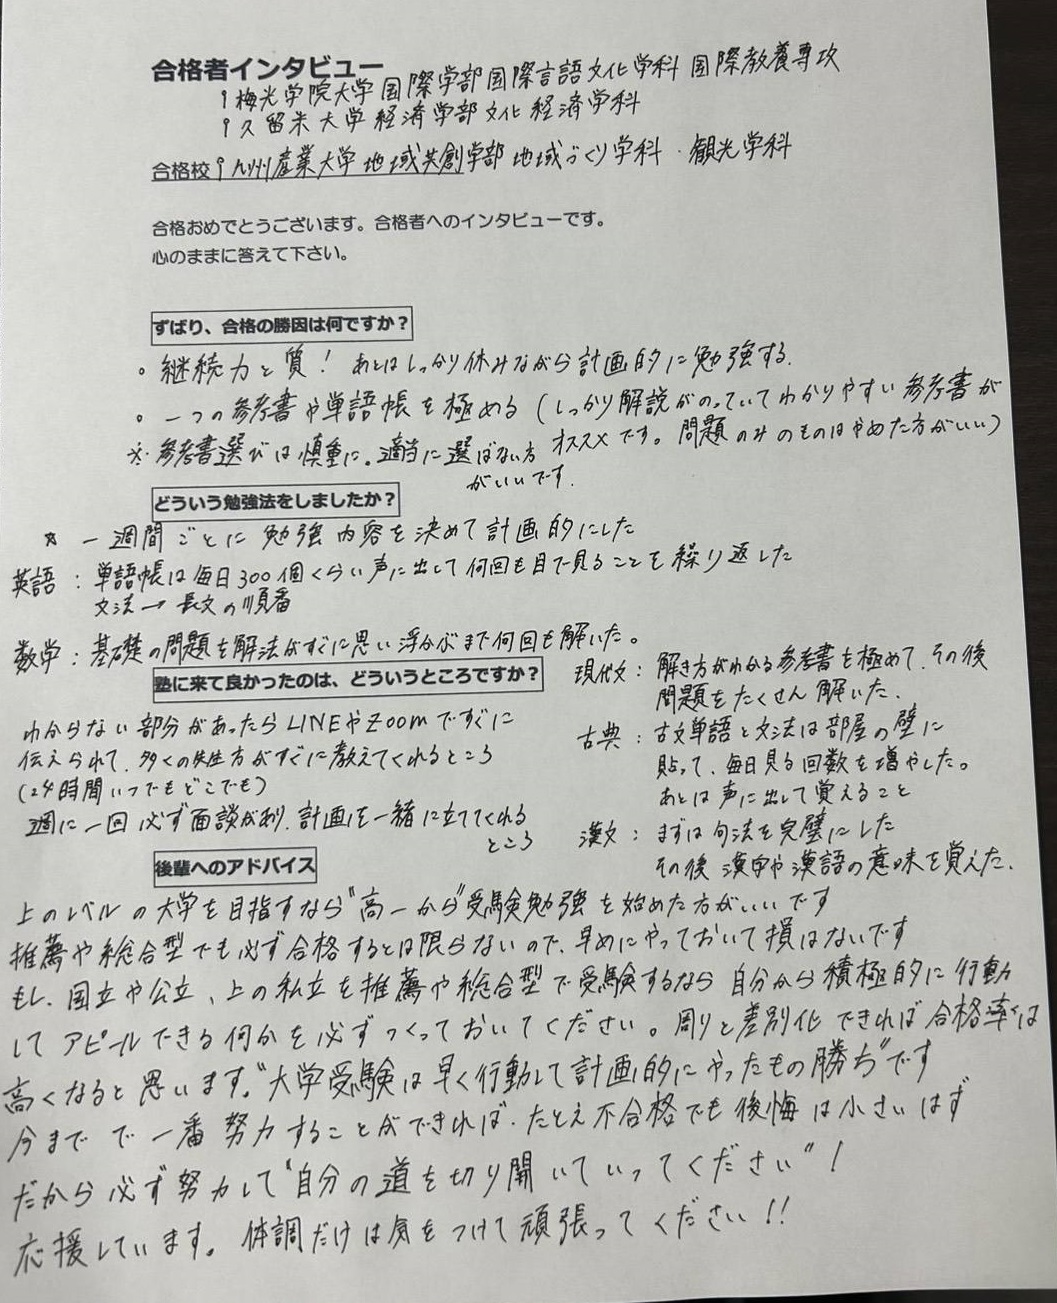 合格者インタビュー
・梅光学院大学 国際学部 国際言語文化学科 国際教養専攻
・久留米大学 経済学部 文化経済学科
合格校 ・九州産業大学 地域共創学部 地域づくり学科・観光学科
合格おめでとうございます。合格者へのインタビューです。
心のままに答えて下さい。
ずばり、合格の勝因は何ですか？
。継続力と質！ あとはしっかり休みながら計画的に勉強する.
。一つの参考書や単語帳を極める(しっかり解説がのっていてわかりやすい参考書が
オススメです。問題のみのものはやめた方がいい)
※参考書選びは慎重に。適当に選ばない方
がいいです.
どういう勉強法をしましたか？
☆ 一週間ごとに勉強内容を決めて計画的にした
英語：単語帳は毎日300個くらい声に出して何回も目で見ることを繰り返した
文法→長文の順番
数学：基礎の問題を解法がすぐに思い浮かぶまで何回も解いた。
現代文：解き方がわかる参考書を極めて、その後
問題をたくさん解いた.
古典：古文単語と文法は部屋の壁に
貼って、毎日見る回数を増やした。
あとは声に出して覚えること
漢文：まずは句法を完璧にした
その後 漢字や漢語の意味を覚えた.
塾に来て良かったのは、どういうところですか？
わからない部分があったらLINEやZoomですぐに
伝えられて、多くの先生方がすぐに教えてくれるところ
(24時間いつでもどこでも)
週に一回必ず面談があり、計画を一緒に立ててくれる
ところ
後輩へのアドバイス
上のレベルの大学を目指すなら“高一から”受験勉強を始めた方がいいです
推薦や総合型でも必ず合格するとは限らないので、早めにやっておいて損はないです
もし、国立や公立、上の私立を推薦や総合型で受験するなら自分から積極的に行動
してアピールできる何かを必ずつくっておいてください。周りと差別化できれば合格率は
高くなると思います。“大学受験は早く行動して計画的にやったもの勝ち”です
今までで一番努力することができれば、たとえ不合格でも後悔は小さいはず
だから必ず努力して“自分の道を切り開いていってください”！
応援しています。体調だけは気をつけて頑張ってください!!